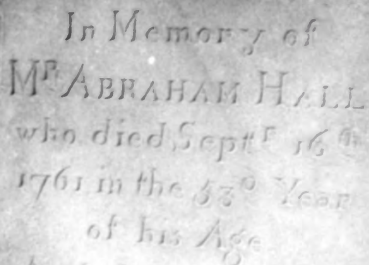 In Memory of
Mr ABRAHAM HALL
who died Septr 16th
1761 in the 53d Year
of his Age